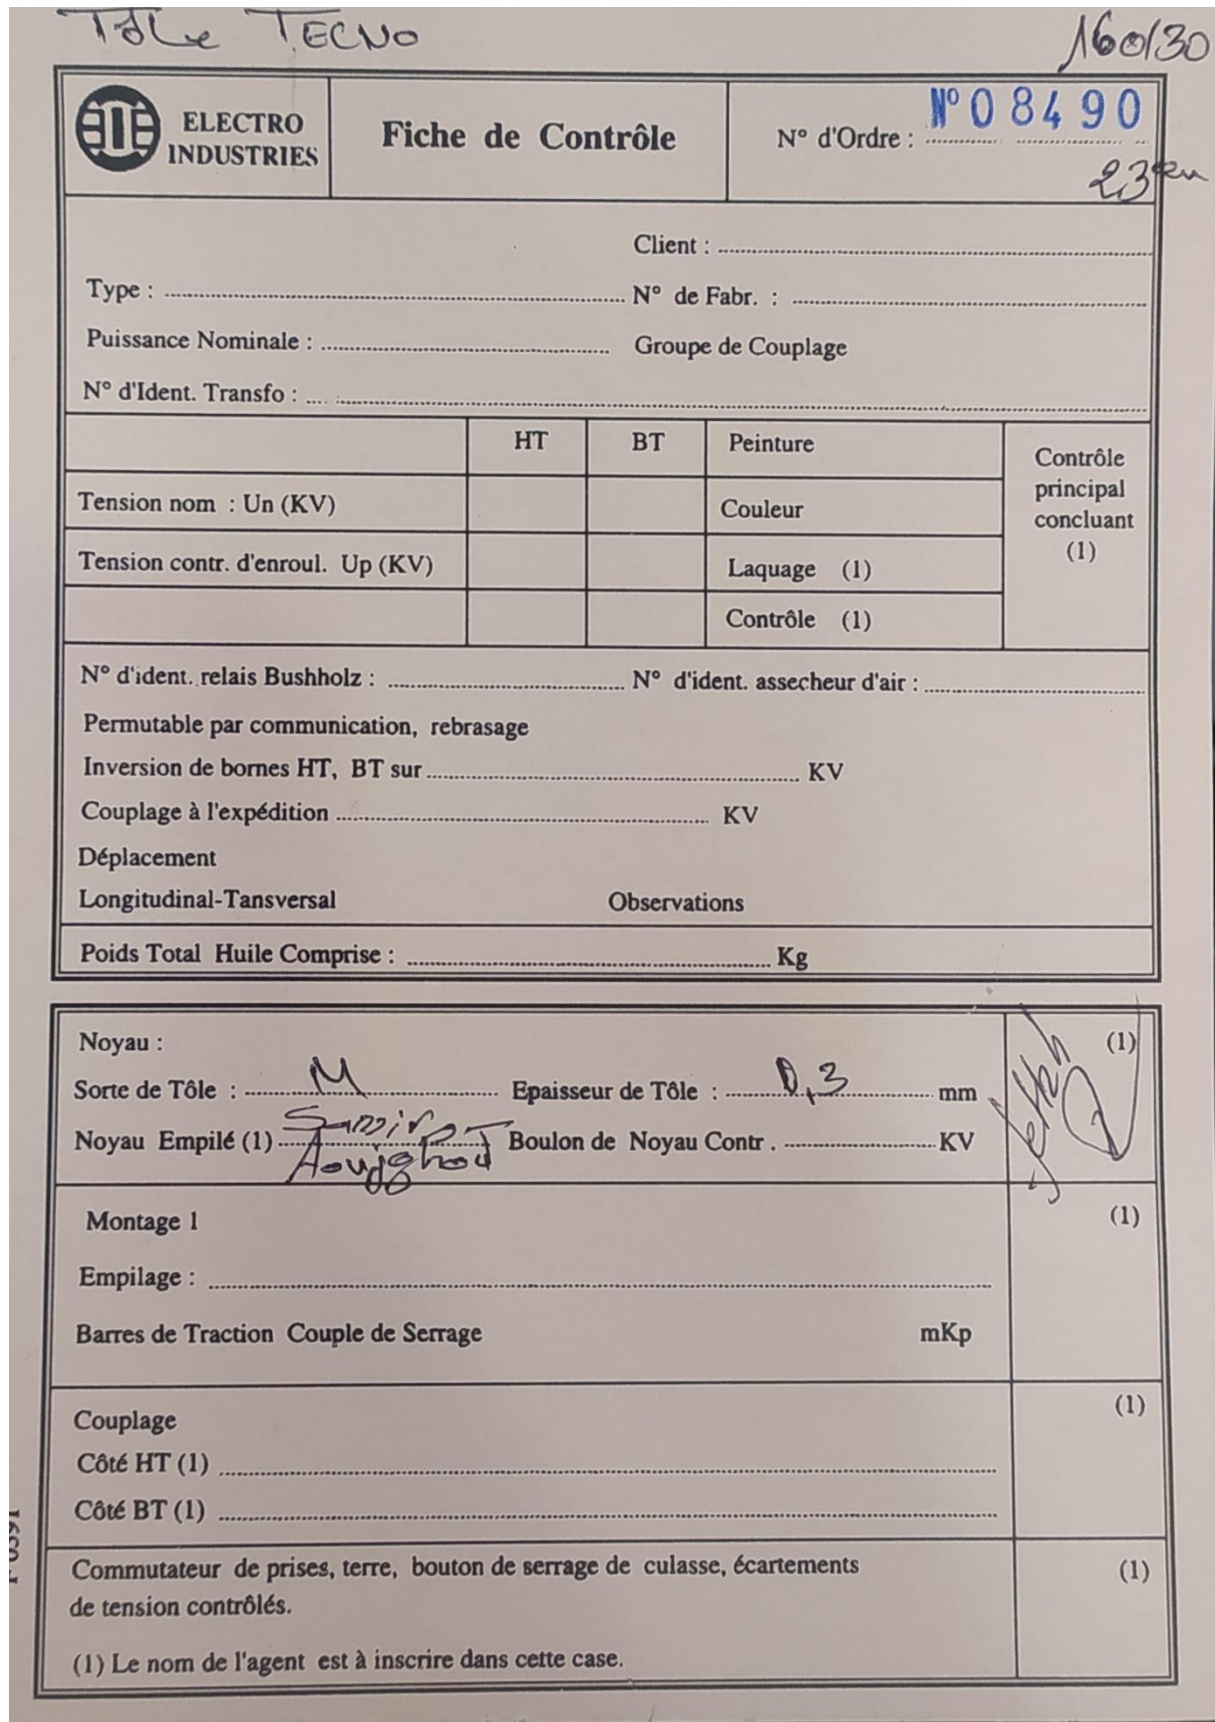 Tôle TECNO
160/30
ELECTRO
INDUSTRIES
Fiche de Contrôle
N° d'Ordre : N° 08490
23
Client :
Type :
N° de Fabr. :
Puissance Nominale :
Groupe de Couplage
N° d'Ident. Transfo :
HT BT Peinture
Contrôle
principal
concluant
(1)
Tension nom : Un (KV)
Couleur
Tension contr. d'enroul. Up (KV)
Laquage (1)
Contrôle (1)
N° d'ident. relais Bushholz :
N° d'ident. assecheur d'air :
Permutable par communication, rebrasage
Inversion de bornes HT, BT sur KV
Couplage à l'expédition KV
Déplacement
Longitudinal-Tansversal
Observations
Poids Total Huile Comprise : Kg
Noyau :
(1)
Sorte de Tôle : M Epaisseur de Tôle : 0,3 mm
Noyau Empilé (1) Samir Boulon de Noyau Contr. KV
Montage 1
(1)
Empilage :
Barres de Traction Couple de Serrage mKp
Couplage
(1)
Côté HT (1)
Côté BT (1)
Commutateur de prises, terre, bouton de serrage de culasse, écartements
(1)
de tension contrôlés.
(1) Le nom de l'agent est à inscrire dans cette case.